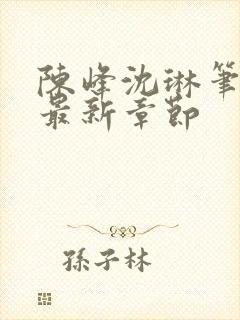 陳峰沈琳筆
最新章節
孫子林